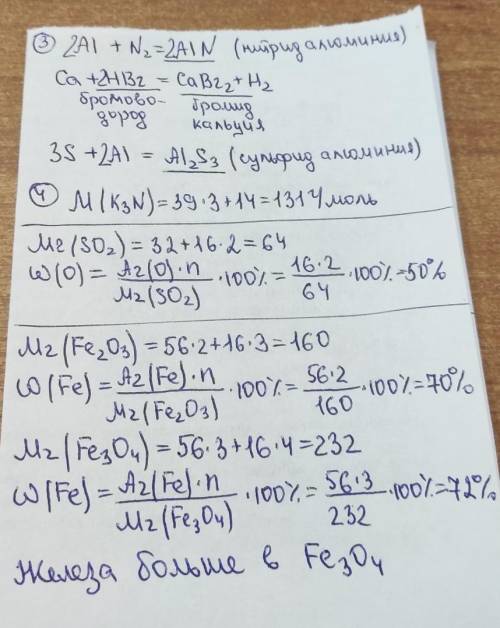 ③ 2Al + N₂ = 2AlN (нитрид алюминия)
Ca + 2HBr = CaBr₂ + H₂
бромово- бромид
дород кальция
3S + 2Al = Al₂S₃ (сульфид алюминия)
④ M(K₃N) = 39·3 + 14 = 131 г/моль
Mr(SO₂) = 32 + 16·2 = 64
ω(O) = Ar(O)·n / Mr(SO₂) · 100% = 16·2 / 64 · 100% = 50%
Mr(Fe₂O₃) = 56·2 + 16·3 = 160
ω(Fe) = Ar(Fe)·n / Mr(Fe₂O₃) · 100% = 56·2 / 160 · 100% = 70%
Mr(Fe₃O₄) = 56·3 + 16·4 = 232
ω(Fe) = Ar(Fe)·n / Mr(Fe₃O₄) · 100% = 56·3 / 232 · 100% = 72%
Железа больше в Fe₃O₄